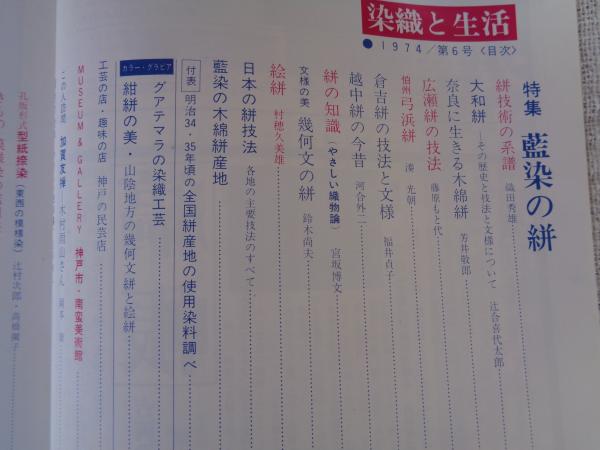 染織と生活
● 1974/第6号〈目次〉
特集 藍染の絣
絣技術の系譜 織田秀雄
大和絣 —その歴史と技法と文様について 辻合喜代太郎
奈良に生きる木綿絣 芳井敬郎
広瀬絣の技法 藤原もと代
伯州 弓浜絣 湊 光朝
倉吉絣の技法と文様 福井貞子
越中絣の今昔 河合外二
絣の知識 (やさしい織物論) 宮坂博文
文様の美 幾何文の絣 鈴木尚夫
絵絣 村穂久美雄
日本の絣技法 各地の主要技法のすべて
藍染の木綿絣産地
付表 明治34・35年頃の全国絣産地の使用染料調べ
カラー・グラビア
グアテマラの染織工芸
紺絣の美・山陰地方の幾何文絣と絵絣
工芸の店・趣味の店 神戸の民芸店
MUSEUM & GALLERY 神戸市・南蛮美術館
この人訪問 加賀友禅—木村雨山さん
型紙捺染 (東西の模様染) 辻村次郎・高橋蘭子